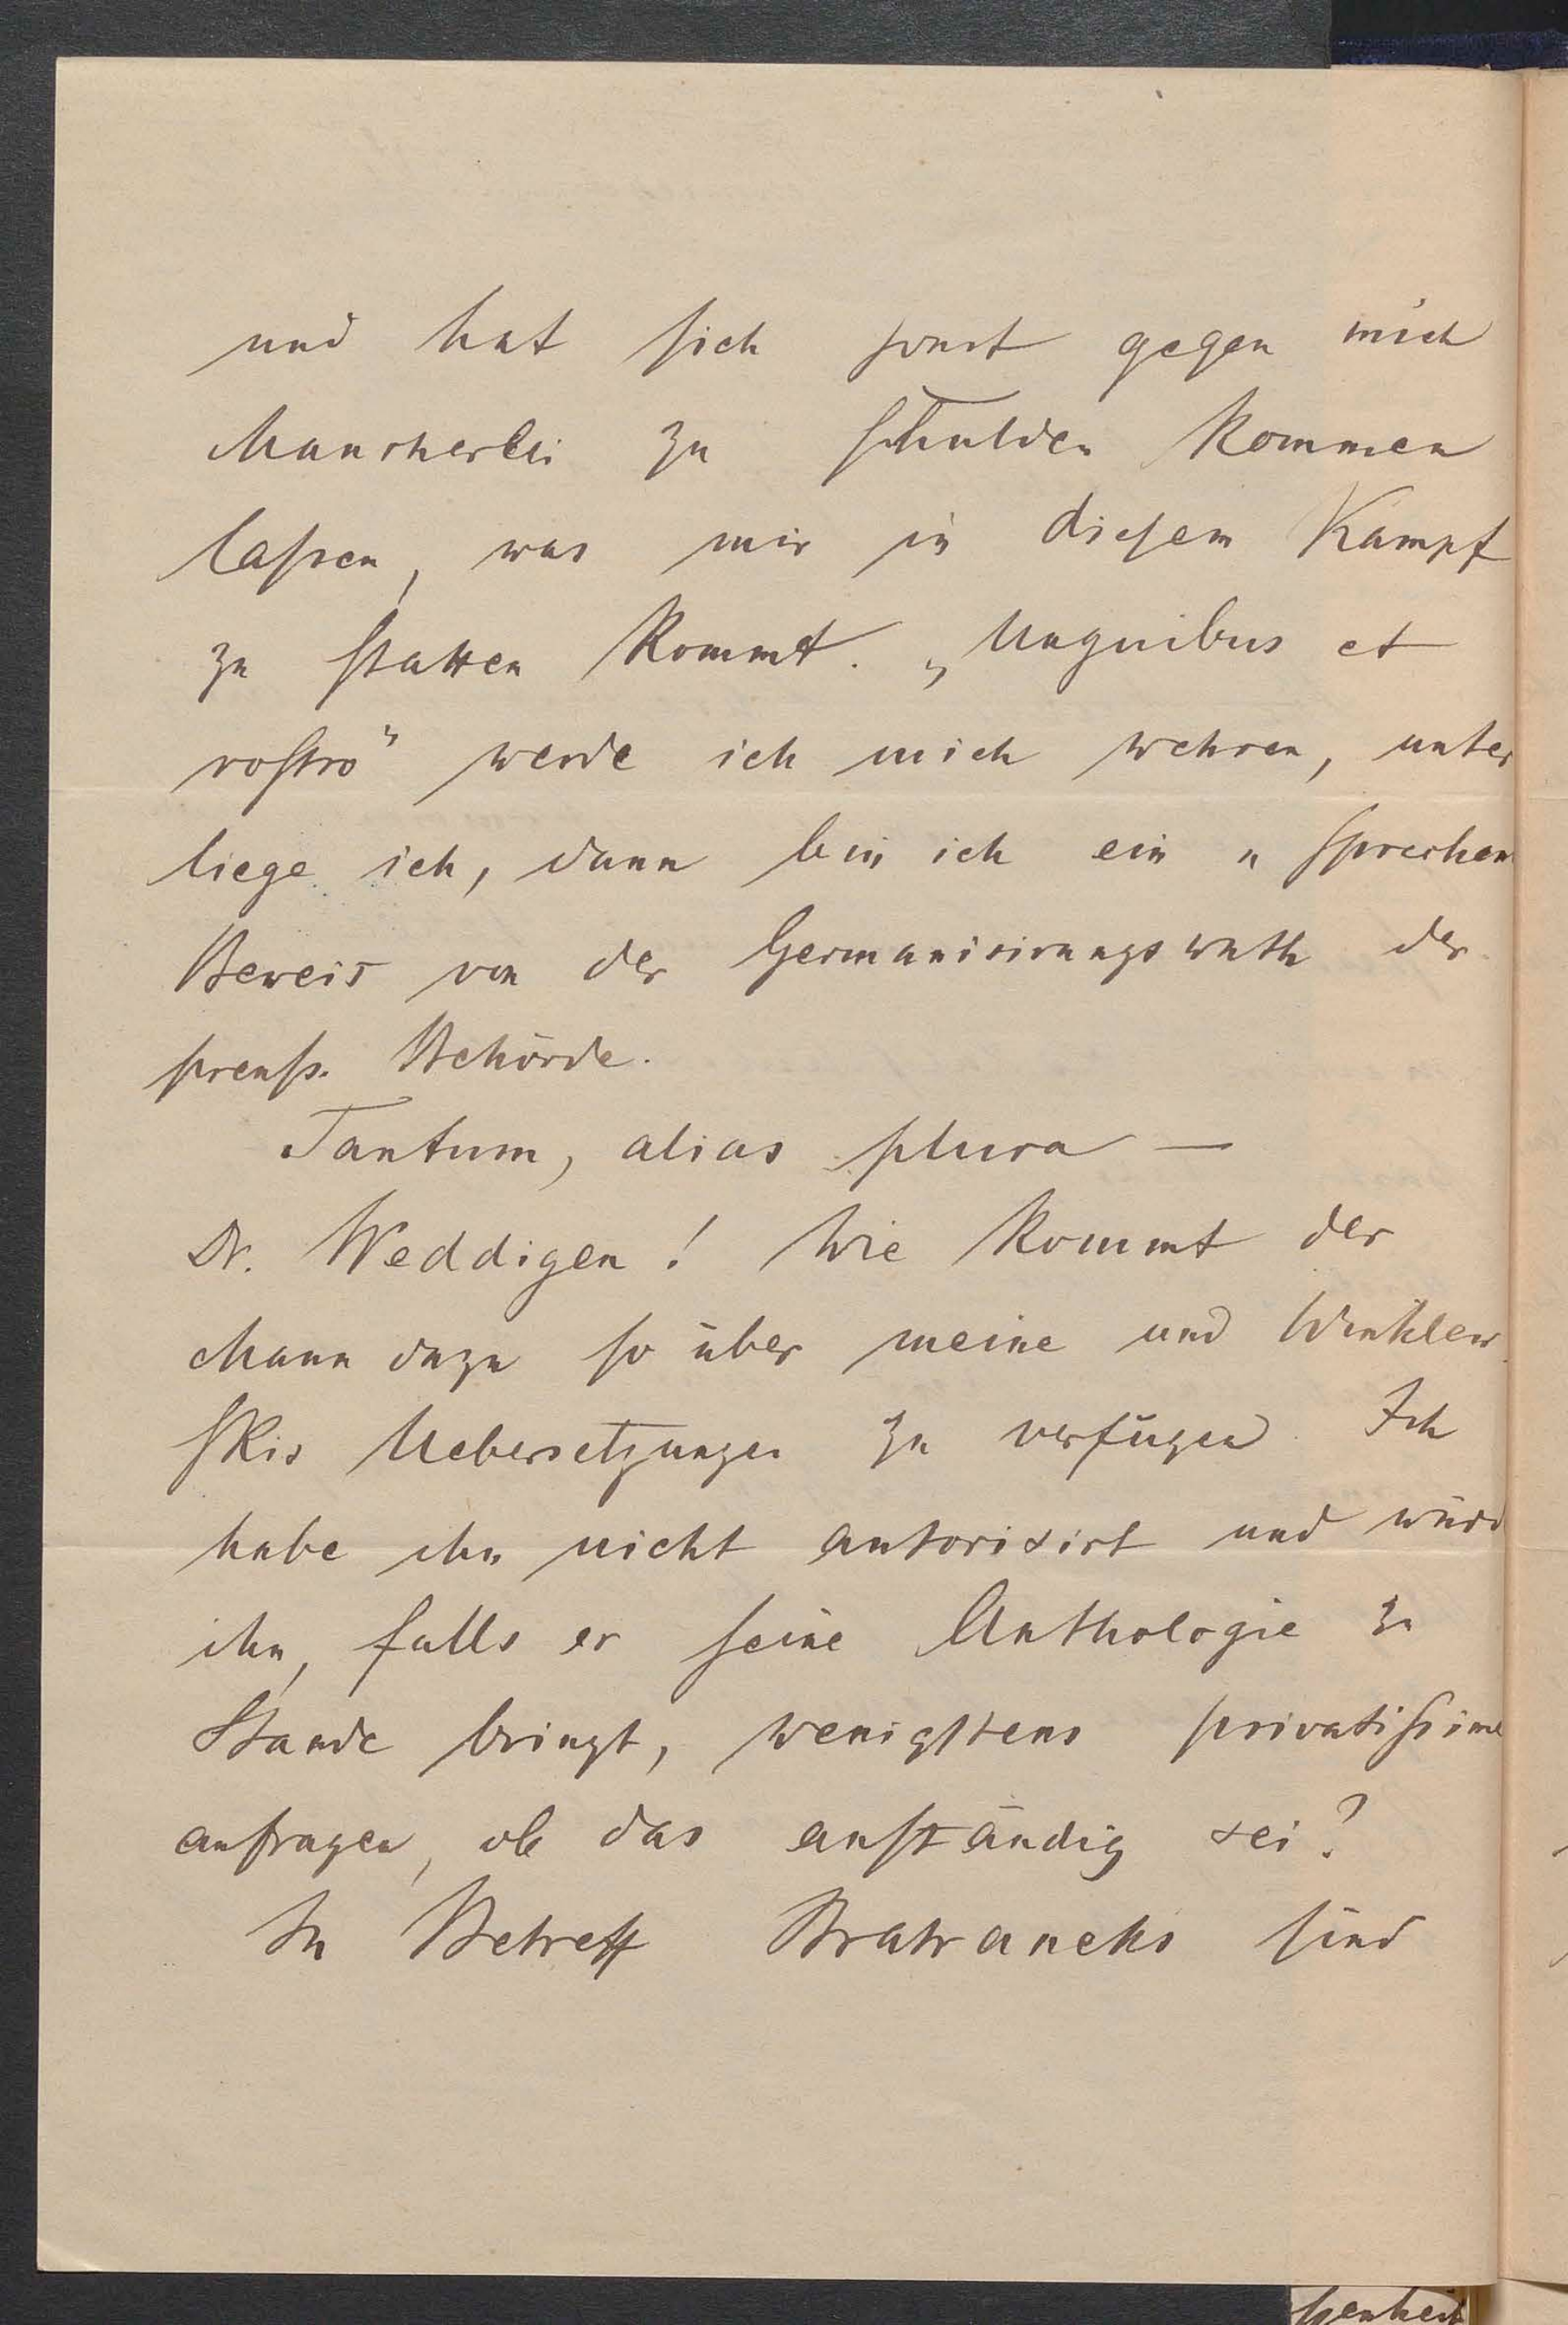 und hat sich sonst gegen mich
Mancherlei zu schulden kommen
lassen, was mir in diesem Kampf
zu statten kommt. „Unguibus et
rostro“ werde ich mich wehren, unter
liege ich, dann bin ich ein „sprechen
Beweis von der Germanisirungswuth der
preuß. Behörde.
Tantum, alias plura —
Dr. Weddigen! Wie kommt der
Mann dazu so über meine und Winklew
skis Uebersetzungen zu verfügen. Ich
habe ihn nicht autorisirt und würd
ihn, falls er seine Anthologie zu
Stande bringt, wenigstens privatissime
anfragen, ob das anständig sei?
In Betreff Bratraneks sind
senheit